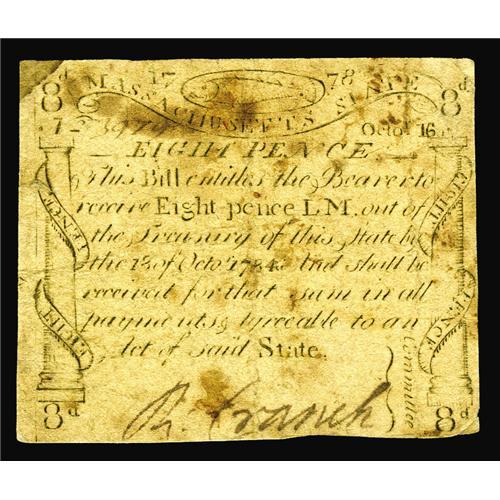 8d 17 78 8d
MASSACHUSETTS STATE
Octor. 16
EIGHT PENCE
This Bill entitles the Bearer to
receive Eight pence L.M. out of
the Treasury of this State by
the 18 of Octor. 1784. And shall be
received for that sum in all
payments, agreeable to an
Act of said State.
EIGHT PENCE
EIGHT PENCE
Committee
R. Cranch
8d 8d